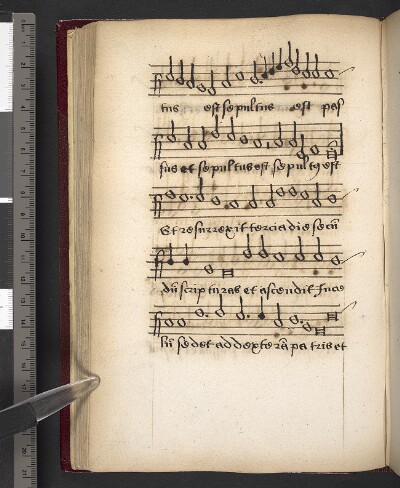 tus est sepultus est pas
sus et sepultus est sepultꝰ est
Et resurrexit tercia die secū
dū scripturas et ascendit in ce
lū sedet ad dexterā patris et